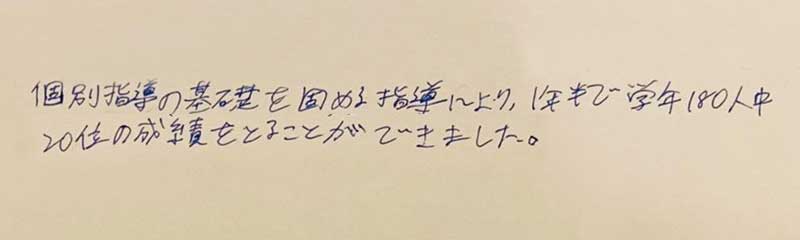 個別指導の基礎を固める指導により、1年半で学年180人中
20位の成績をとることができました。